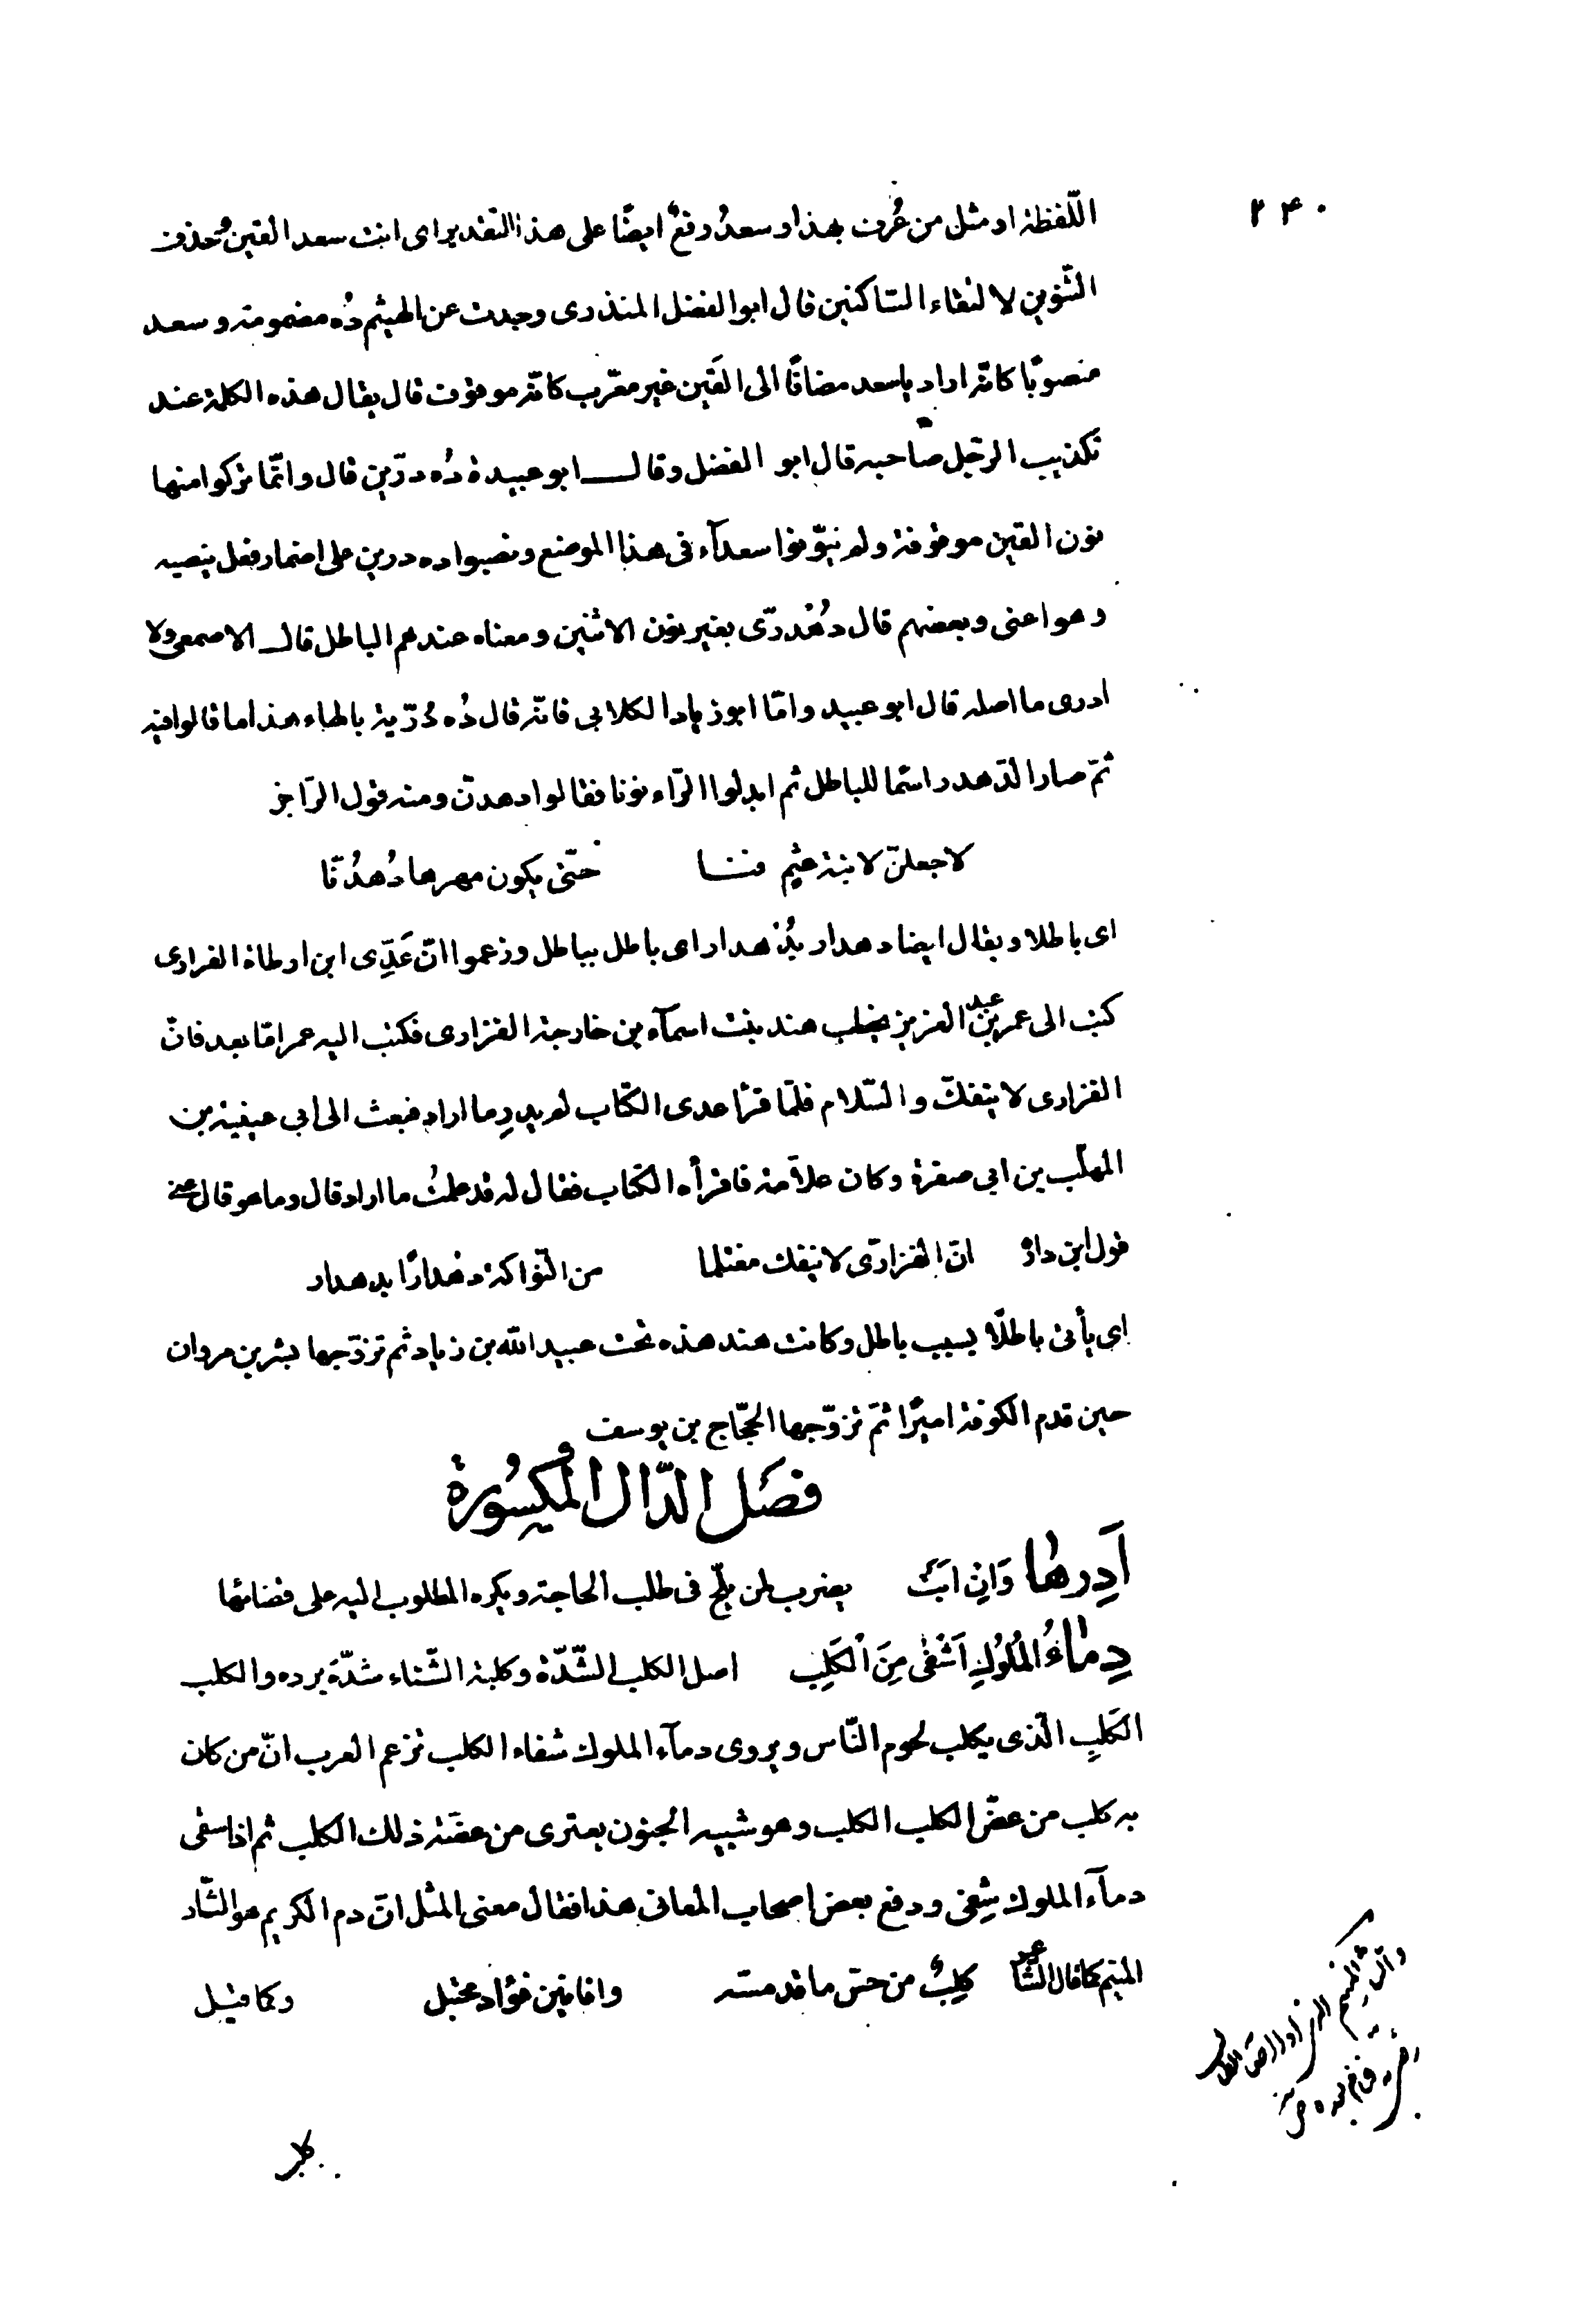 ۲۴۰
اللّفظة او مثل من عُرف بهذا و سعدُ رفعٌ ايضًا على هذا التقدير اى انت سعد القين فحذف
التّنوين لالتقاء السّاكنين قال ابو الفضل المنذرى وجدت عن الهيثم دُه مضمومة و سعد
منصوبًا كانّه اراد ياسعد مضافًا الى القَين غير معرّب كانّه موقوف قال يقال هذه الكلمة عند
تكذيب الرّجل صاحبه قال ابو الفضل وقال ابو عبيدة دُه درّين قال وانّما تركوا منها
نون القين موقوفة ولم ينوّنوا سعداء فى هذا الموضع ونصبوا ده درين على اضمار فعل ينصبه
وهو اعنى وبعضهم قال دُهْدرّى بغير نون الاثنين ومعناه عندهم الباطل قال الاصمعى ولا
ادرى ما اصله قال ابو عبيد وامّا ابو زياد الكلابى فانّه قال دُه دُرّية بالهاء هذا ما قالوا فيه
ثمّ صار الدّهدر اسمًا للباطل ثم ابدلوا الرّاء نونا فقالوا دهدنّ ومنه قول الرّاجز
لاجعلنّ لابنة عثيم فنّا حتّى يكون مهرها دُهدُنّا
اى باطلا ويقال ايضا دهدار بدُهدار اى باطل بباطل وزعموا انّ عَدِّى ابن ارطاة الفزارى
كتب الى عمر بن عبد العزيز يخطب هند بنت اسمآء بن خارجة الفزارى فكتب اليه عمر امّا بعد فانّ
الفزارى لا ينفكّ والسّلام فلمّا قرأ عدى الكتاب لم يدرِ ما اراد فبعث الى ابى عيينة بن
المهلّب بن ابى صفرة وكان علاّمة فاقرأه الكتاب فقال له قد علمتُ ما اراد قال وما هو قال عنى
قول ابن دارة انّ الفزارّى لا ينفك مغتلما من النّواكة دهدارًا بدهدار
اى يأتى باطلًا بسبب باطل وكانت هند هذه تحت عبيد الله بن زياد ثم تزوّجها بشر بن مروان
حين قدم الكوفة اميرًا ثمّ تزوّجها الحجّاج بن يوسف
فصَل الدّال المكسُورة
اَدِرهٰا وَانِ ابَتْ يضرب لمن يلحّ فى طلب الحاجة ويكره المطلوب اليه على قضائها
دِمٰاءُ المُلُوكِ اَشْفٰى مِنَ الْكَلِبِ اصل الكلب الشّدّة وكلبة الشّتاء شدّة برده والكلب
الكَلبِ الّذى يكلب لحوم النّاس ويروى دمآء الملوك شفاء الكلب تزعم العرب انّ من كان
به كلب من عضّ الكلب الكلب وهو شبيه الجنون يعترى من عضّة ذلك الكلب ثم اذا سقى
دمآء الملوك شِفى ودفع بعض اصحاب المعانى هذا فقال معنى المثل انّ دم الكريم هو الثّار
المنيم كما قال الشّاعر كلِبٌ من حسّ ما قد مسّه وافانين فؤاد مختبل وكما قيل